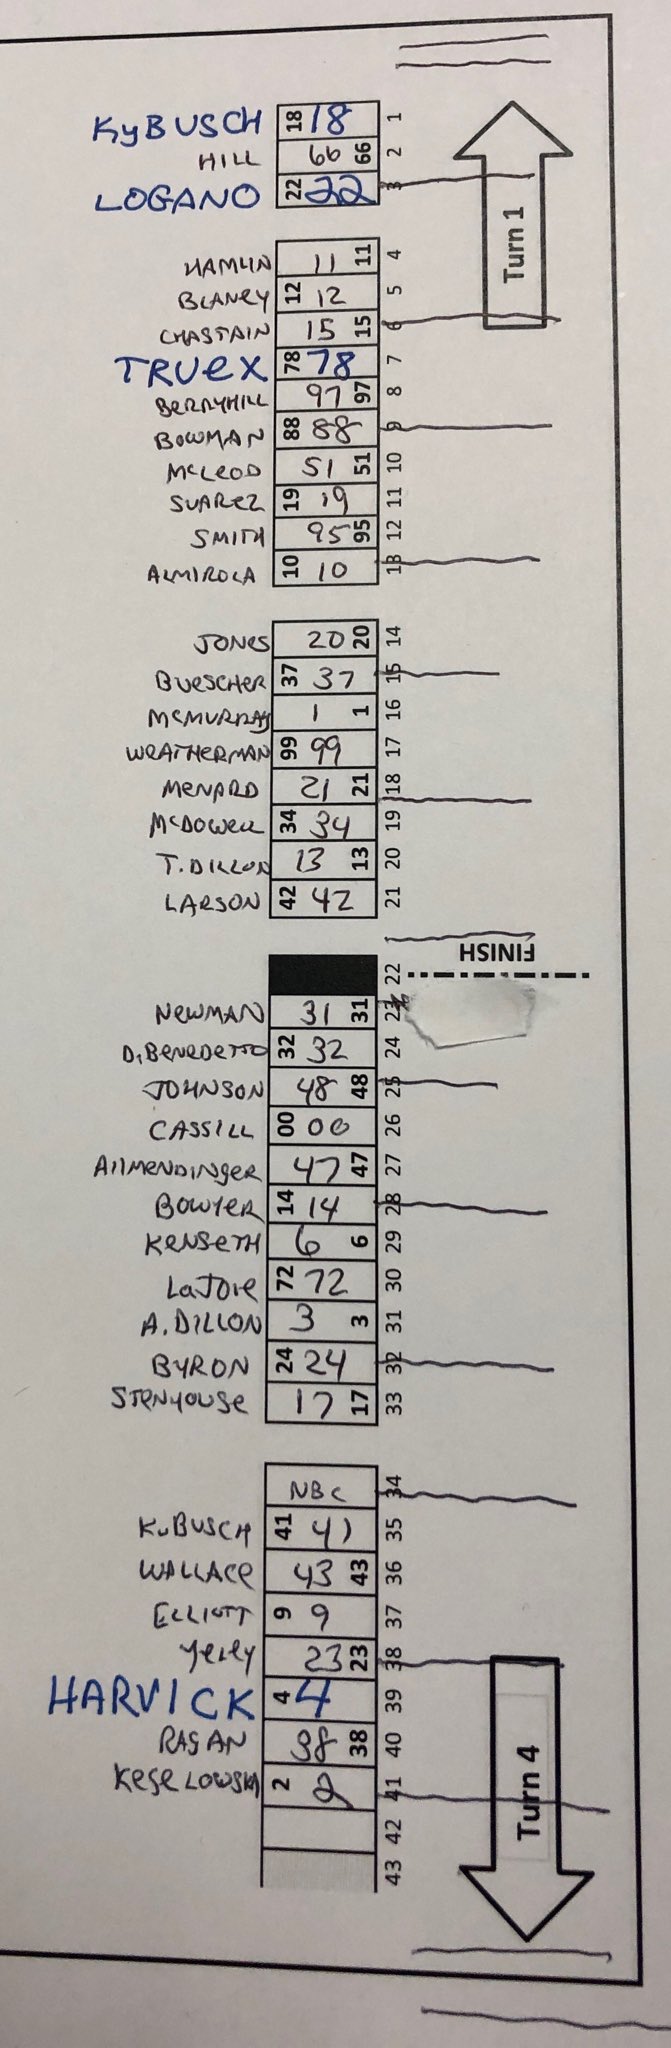 KyBUSCH 18 18 1
HILL 66 66 2
LOGANO 22 22 3
HAMLIN 11 11 4
BLANEY 12 12 5
CHASTAIN 15 15 6
TRUEX 78 78 7
BERRYHILL 97 97 8
BOWMAN 88 88 9
McLEOD 51 51 10
SUAREZ 19 19 11
SMITH 95 95 12
ALMIROLA 10 10 13
Turn 1
JONES 20 20 14
BUESCHER 37 37 15
McMURRAY 1 1 16
WEATHERMAN 99 99 17
MENARD 21 21 18
McDOWELL 34 34 19
T. DILLON 13 13 20
LARSON 42 42 21
22 FINISH
NEWMAN 31 31 23
DiBENEDETTO 32 32 24
JOHNSON 48 48 25
CASSILL 00 00 26
AllMENDINgER 47 47 27
BOWYER 14 14 28
KENSETH 6 6 29
LaJOIE 72 72 30
A. DILLON 3 3 31
BYRON 24 24 32
STENHOUSE 17 17 33
NBC 34
KuBUSCH 41 41 35
WALLACE 43 43 36
ELLIOTT 9 9 37
Yeley 23 23 38
HARVICK 4 4 39
RAGAN 38 38 40
KESELOWSKI 2 2 41
42
43
Turn 4